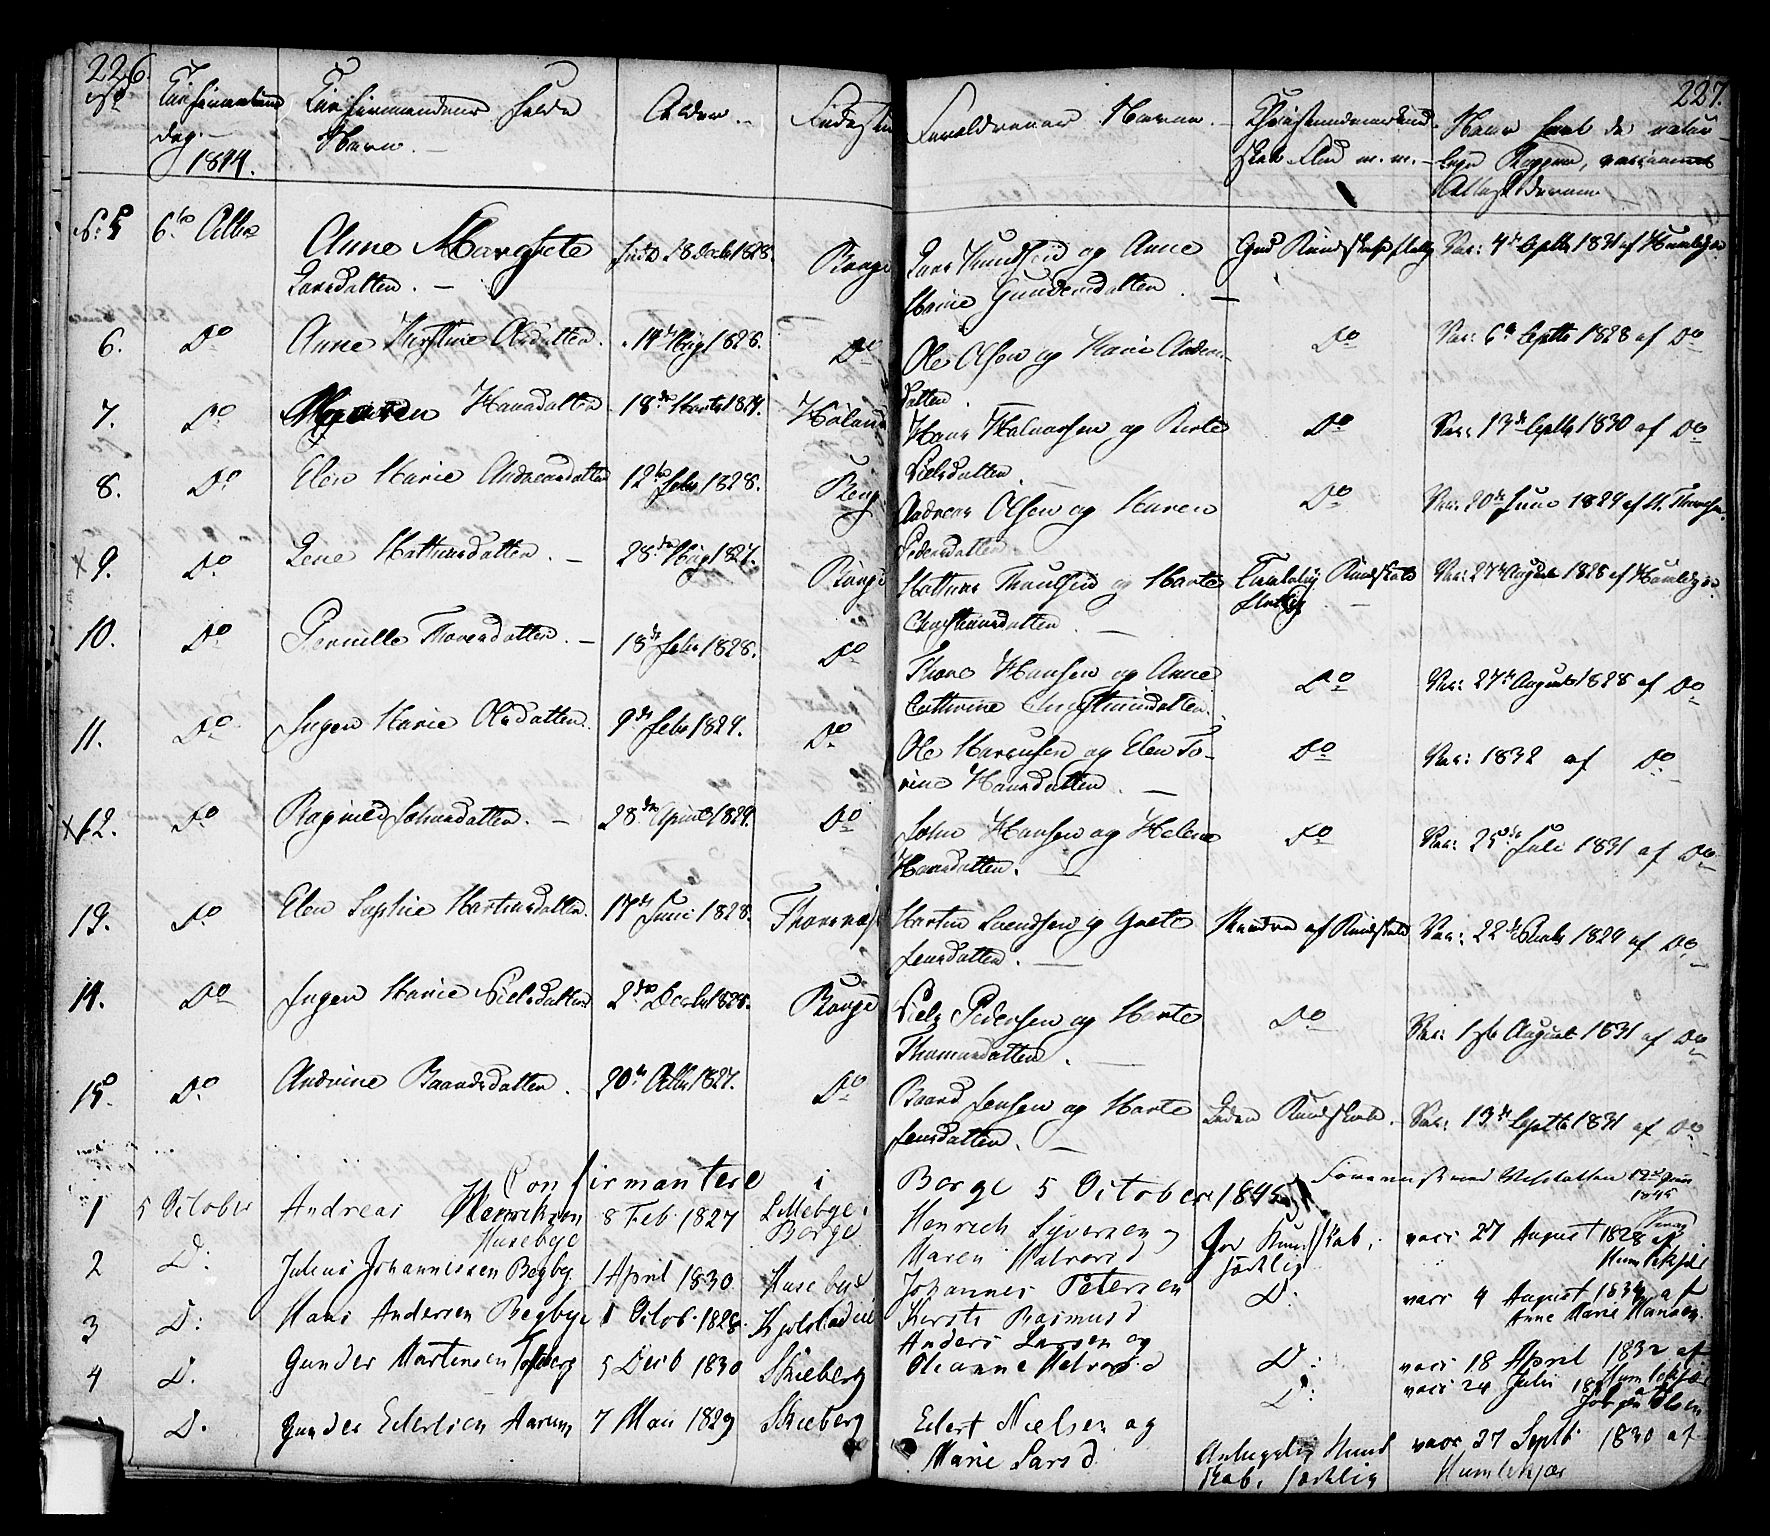 226.
227.
No
Confirmations
dag.
1844.
Confirmandens fulde
Navn.
Alder.
Fødested
Forældrenes Navne.
Christendomskund
skab Flid m. m.
Naar havt de natur
lige Kopper, vaccineret
Attest derom
No 5 6te Octbr Anne Margrete
Larsdatter. født 28 Decbr 1828. Borge Lars Knudsen og Anne
Marie Gundersdatter. God Kundskab flittig Vac: 4de Septbr 1831 af Humlekjær
6. Do Anne Kirstine Olsdatter. 14de Aug 1828. Do Ole Olsen og Marie Andrea-
datter. Do Vac: 6te Septbr 1828 af Do
7. Do Maren Hansdatter 18de Marts 1829. Høland Hans Halvorsen og Berte
Nielsdatter. Do Vac: 13de Septbr 1830 af Do
8. Do Elen Marie Andreasdatter 12te Febr 1828. Andreas Olsen og Maren
Pedersdatter. Do Vac: 20de Juni 1829 af
x 9. Do Lene Mathiasdatter. 28de Aug 1827. Borge Mathias Poulsen og Marte
Christiansdatter. Temmelig Kundskab
flittig Vac: 27de August 1828 af Humlekjær
10. Do Pernille Thoresdatter. 18de Febr 1828. Do Thore Hansen og Anne
Cathrine Christiansdatter. Do Vac: 27de August 1828 af Do
11. Do Ingen Marie Olsdatter. 9de Febr 1829. Do Ole Hansen og Elen To-
rine Hansdatter. Do Vac: 1832 af Do
x 12. Do Ragnild Johansdatter. 28de April 1829. Do John Hansen og Helene
Hansdatter. Do Vac: 25de Juli 1831 af Do
13. Do Elen Sophie Martinsdatter. 17de Juni 1828. Thorsnæs Martin Svendsen og Grete
Jensdatter. Mindre af Kundskab Vac: 22de 1829 af Do
14. Do Ingen Marie Nielsdatter 2den Decbr 1828. Borge Niels Pedersen og Marte
Thomasdatter. Do Vac: 1ste August 1831 af Do
15. Do Andrine Baardsdatter. 20de Octbr 1827. Do Baard Jensen og Marte
Jensdatter. Liden Kundskab. Vac: 13de Septbr 1831 af Do
Confirmantere i Borge 5 October 1845.
1 5 October Andreas Henriksen
Husebye 8 Feb. 1827 Lillebye i
Borge Henrich Syversen og
Maren Halvorsd God Kundskab,
sædelig vacs 27 August 1828 af
Humlekjær
2 D: Julius Johannessen Begby 1 April 1830 Husebye Johannes Petersen
Kirsti Rasmusd D: vacs 4 August 1834 af
Anne Marie Hansen.
3 D: Hans Andersen Begbye 1 Octob. 1828. Kjølstadeie Anders Larsen og
Oleanne Halvorsd D: vacs 18 April 1832 af
Humlekjær
4 D. Gunder Martensen Tofteberg 5 Decb 1830 Skieberg D: vacs 24 Juli
Jørgen Olsen
D. Gunder Edertsen Aarum 7 Mai 1829 Skieberg Edert Nielsen og
Marie Larsd. Antagelig Kund
skab, sædelig vacs 27 Septb. 1830 af
Humlekjær